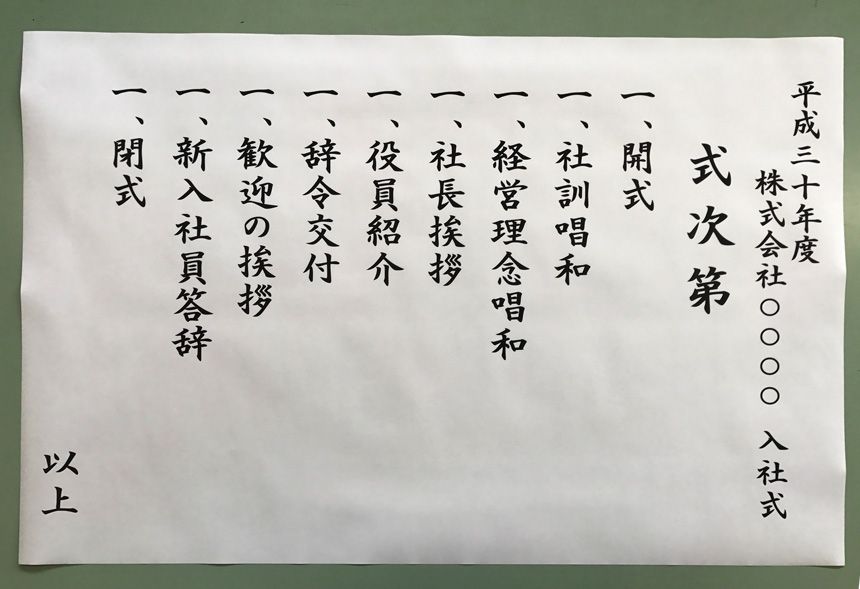 平成三十年度
株式会社〇〇〇〇 入社式
式次第
一、開式
一、社訓唱和
一、経営理念唱和
一、社長挨拶
一、役員紹介
一、辞令交付
一、歓迎の挨拶
一、新入社員答辞
一、閉式
以上